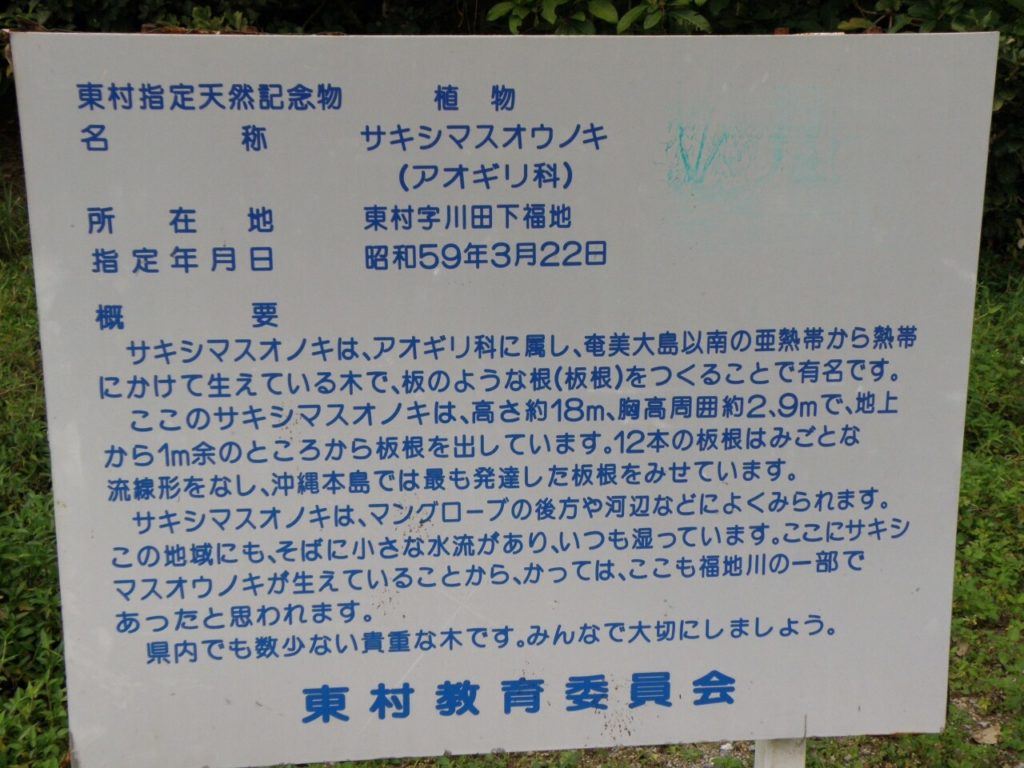 東村指定天然記念物 植物
名称 サキシマスオウノキ
(アオギリ科)
所在地 東村字川田下福地
指定年月日 昭和59年3月22日
概要
サキシマスオノキは、アオギリ科に属し、奄美大島以南の亜熱帯から熱帯
にかけて生えている木で、板のような根(板根)をつくることで有名です。
ここのサキシマスオノキは、高さ約18m、胸高周囲約2、9mで、地上
から1m余のところから板根を出しています。12本の板根はみごとな
流線形をなし、沖縄本島では最も発達した板根をみせています。
サキシマスオノキは、マングローブの後方や河辺などによくみられます。
この地域にも、そばに小さな水流があり、いつも湿っています。ここにサキシ
マスオウノキが生えていることから、かっては、ここも福地川の一部で
あったと思われます。
県内でも数少ない貴重な木です。みんなで大切にしましょう。
東村教育委員会